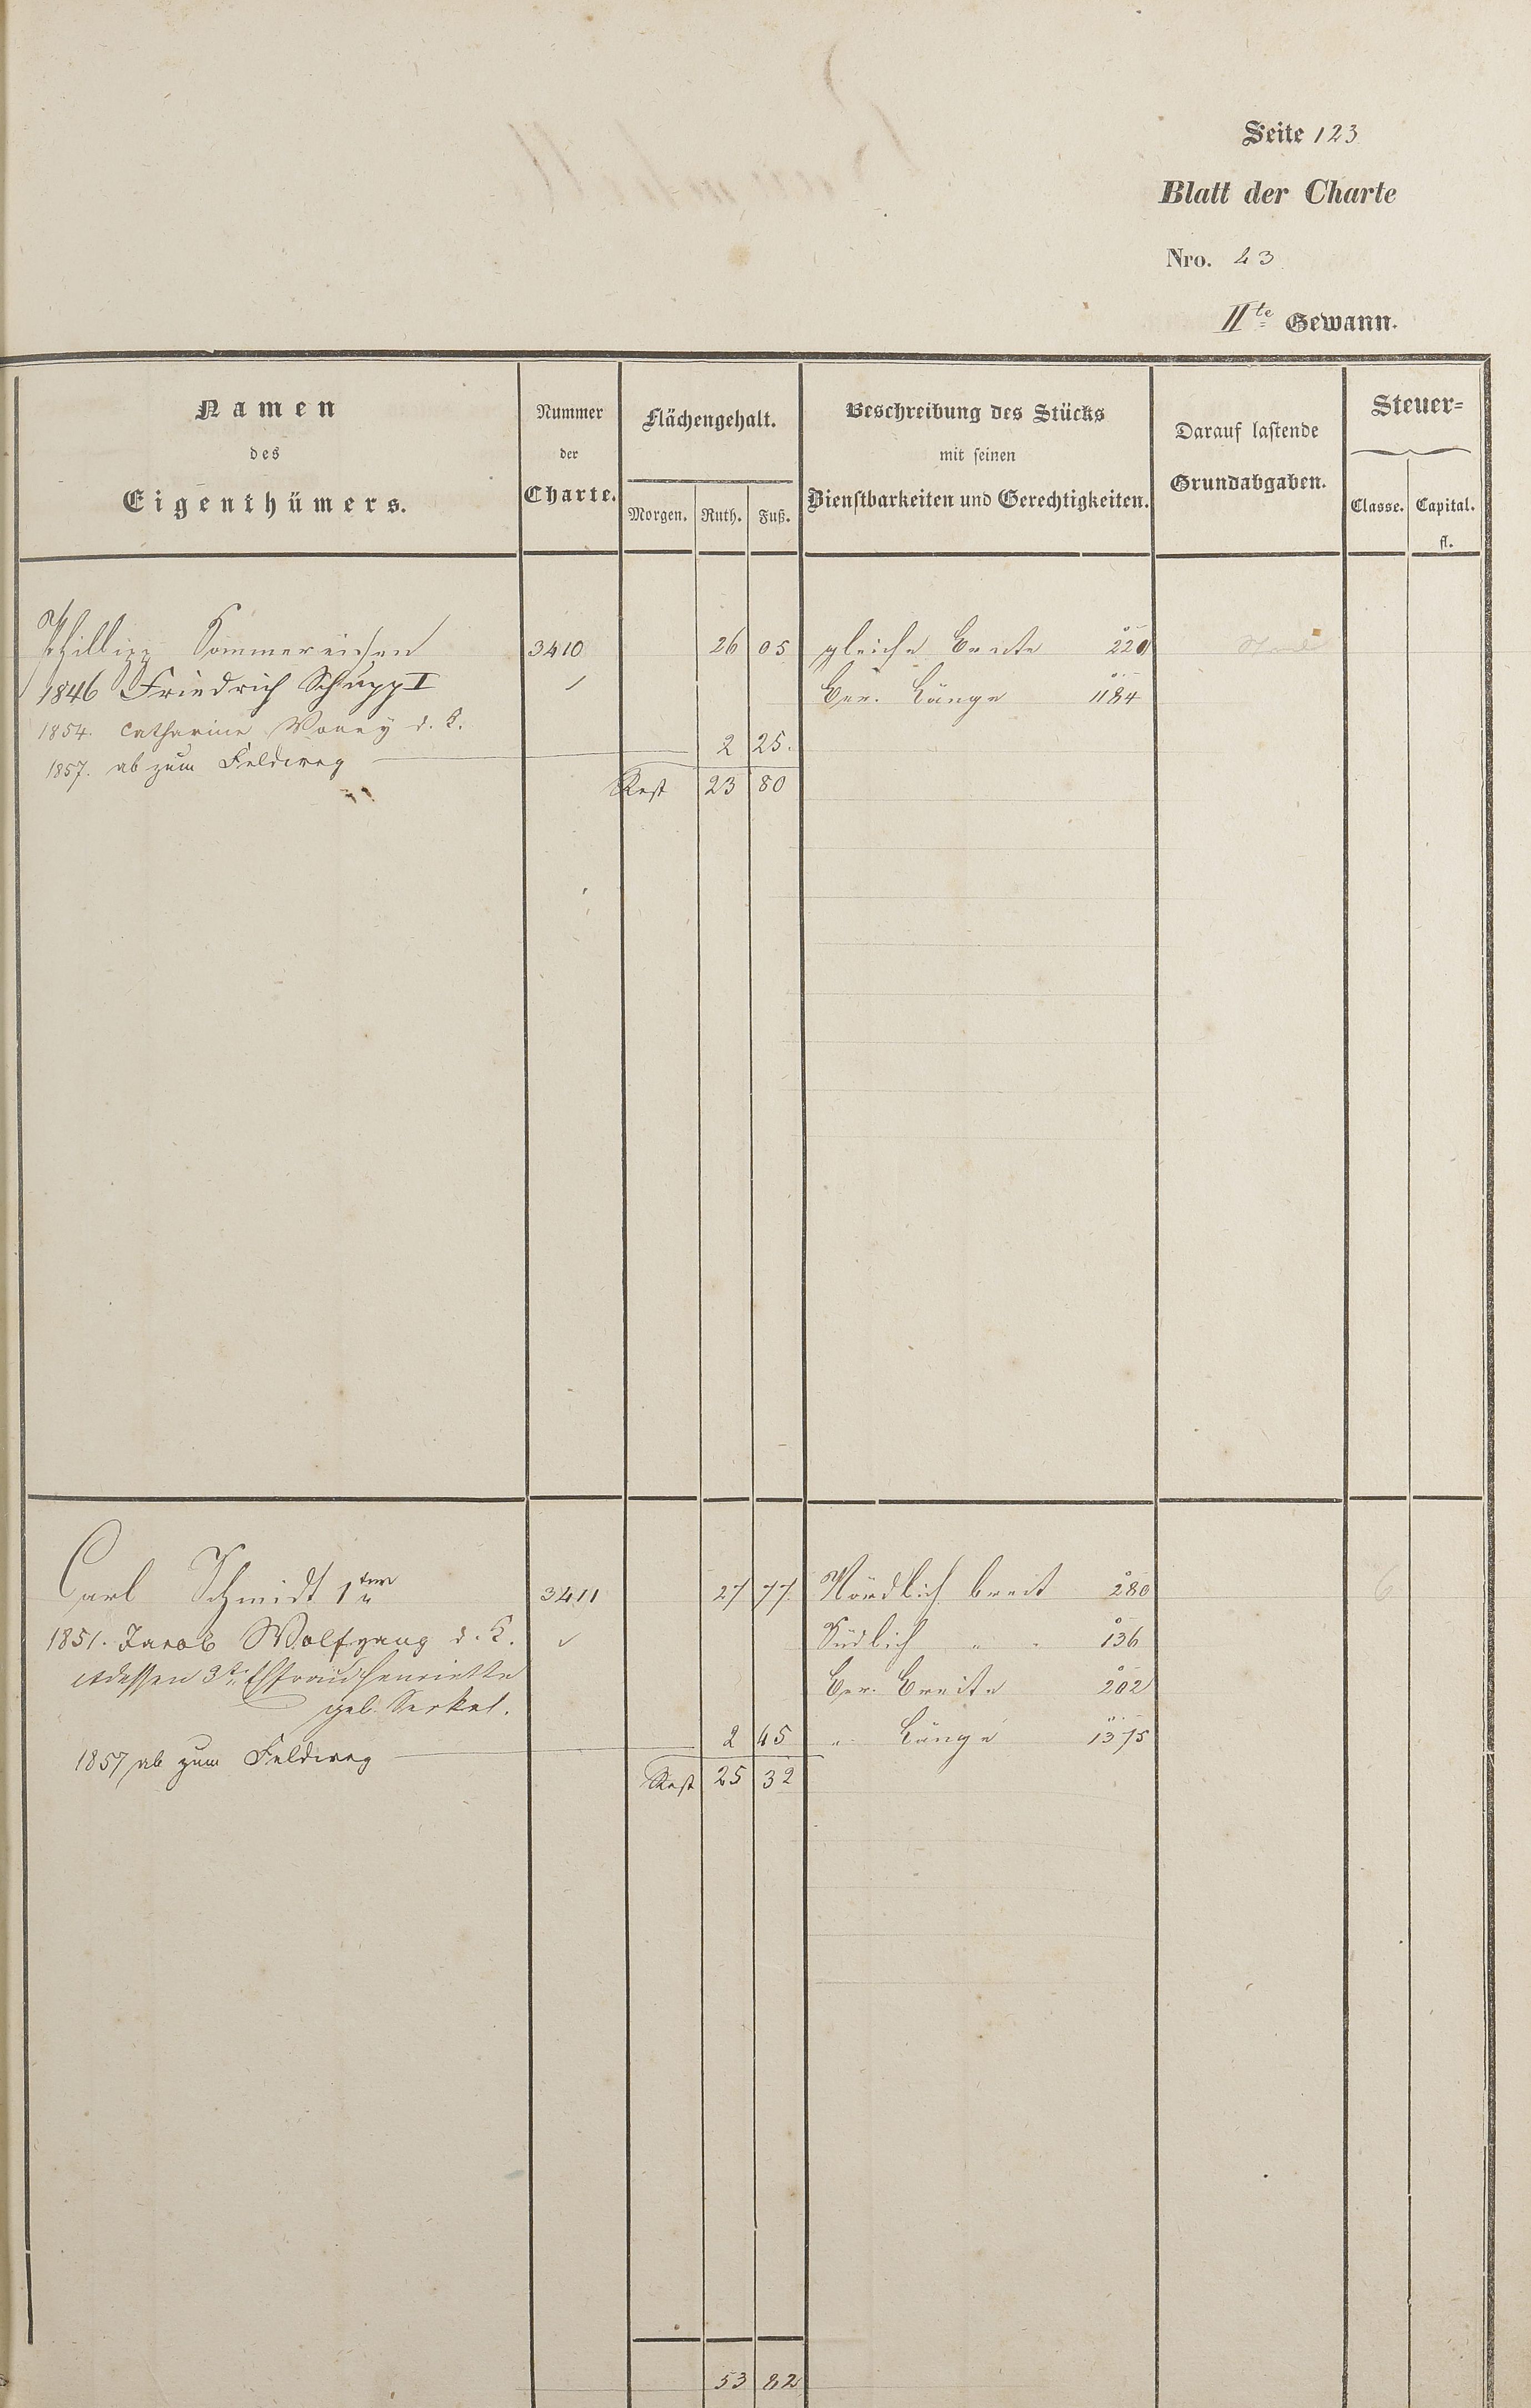 Seite 123
Blatt der Charte
Nro. 23
IIte Gewann.
Namen
des
Eigenthümers.
Nummer
der
Charte.
Flächengehalt.
Morgen. Ruth. Fuß.
Beschreibung des Stücks
mit seinen
Dienstbarkeiten und Gerechtigkeiten.
Darauf lastende
Grundabgaben.
Steuer=
Classe. Capital.
fl.
Phillipp Sommereisen 3410 26 05 gleiche Breite 220
1846 Friedrich Schupp I Ber. Länge 1184
1854. Catharine d. K.
1857. ab zum Feldweg 2 25.
Rest 23 80
Carl Schmidt 1ter 3411 27 77. Nördlich breit 280
1851. Jacob Wolfgang d. K. Südlich " " 136
dessen 3te Ehfrau Henriette Ber. Breite 202
geb. Serkel.
2 45 " Länge 1375
1857 ab zum Feldweg
Rest 25 32
53 82